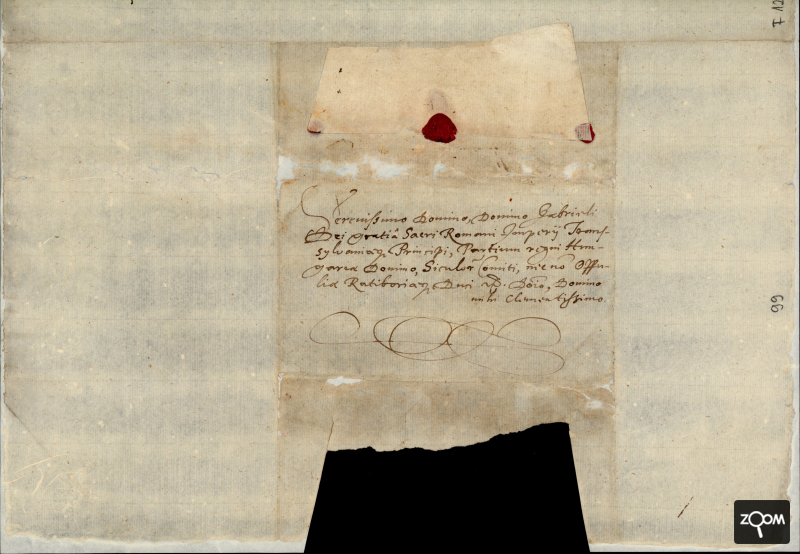 Serenissimo Domino, Domino Gabrieli
Dei gratiâ Sacri Romani Imperij Trans-
sylvaniaeq, Principi, Partium regni Hun-
gariae Domino, Siculor Comiti, nec no Oppu-
liae Ratiboriaeq, Duci Dno, Domino
mihi Clementissimo.
99
ZOOM